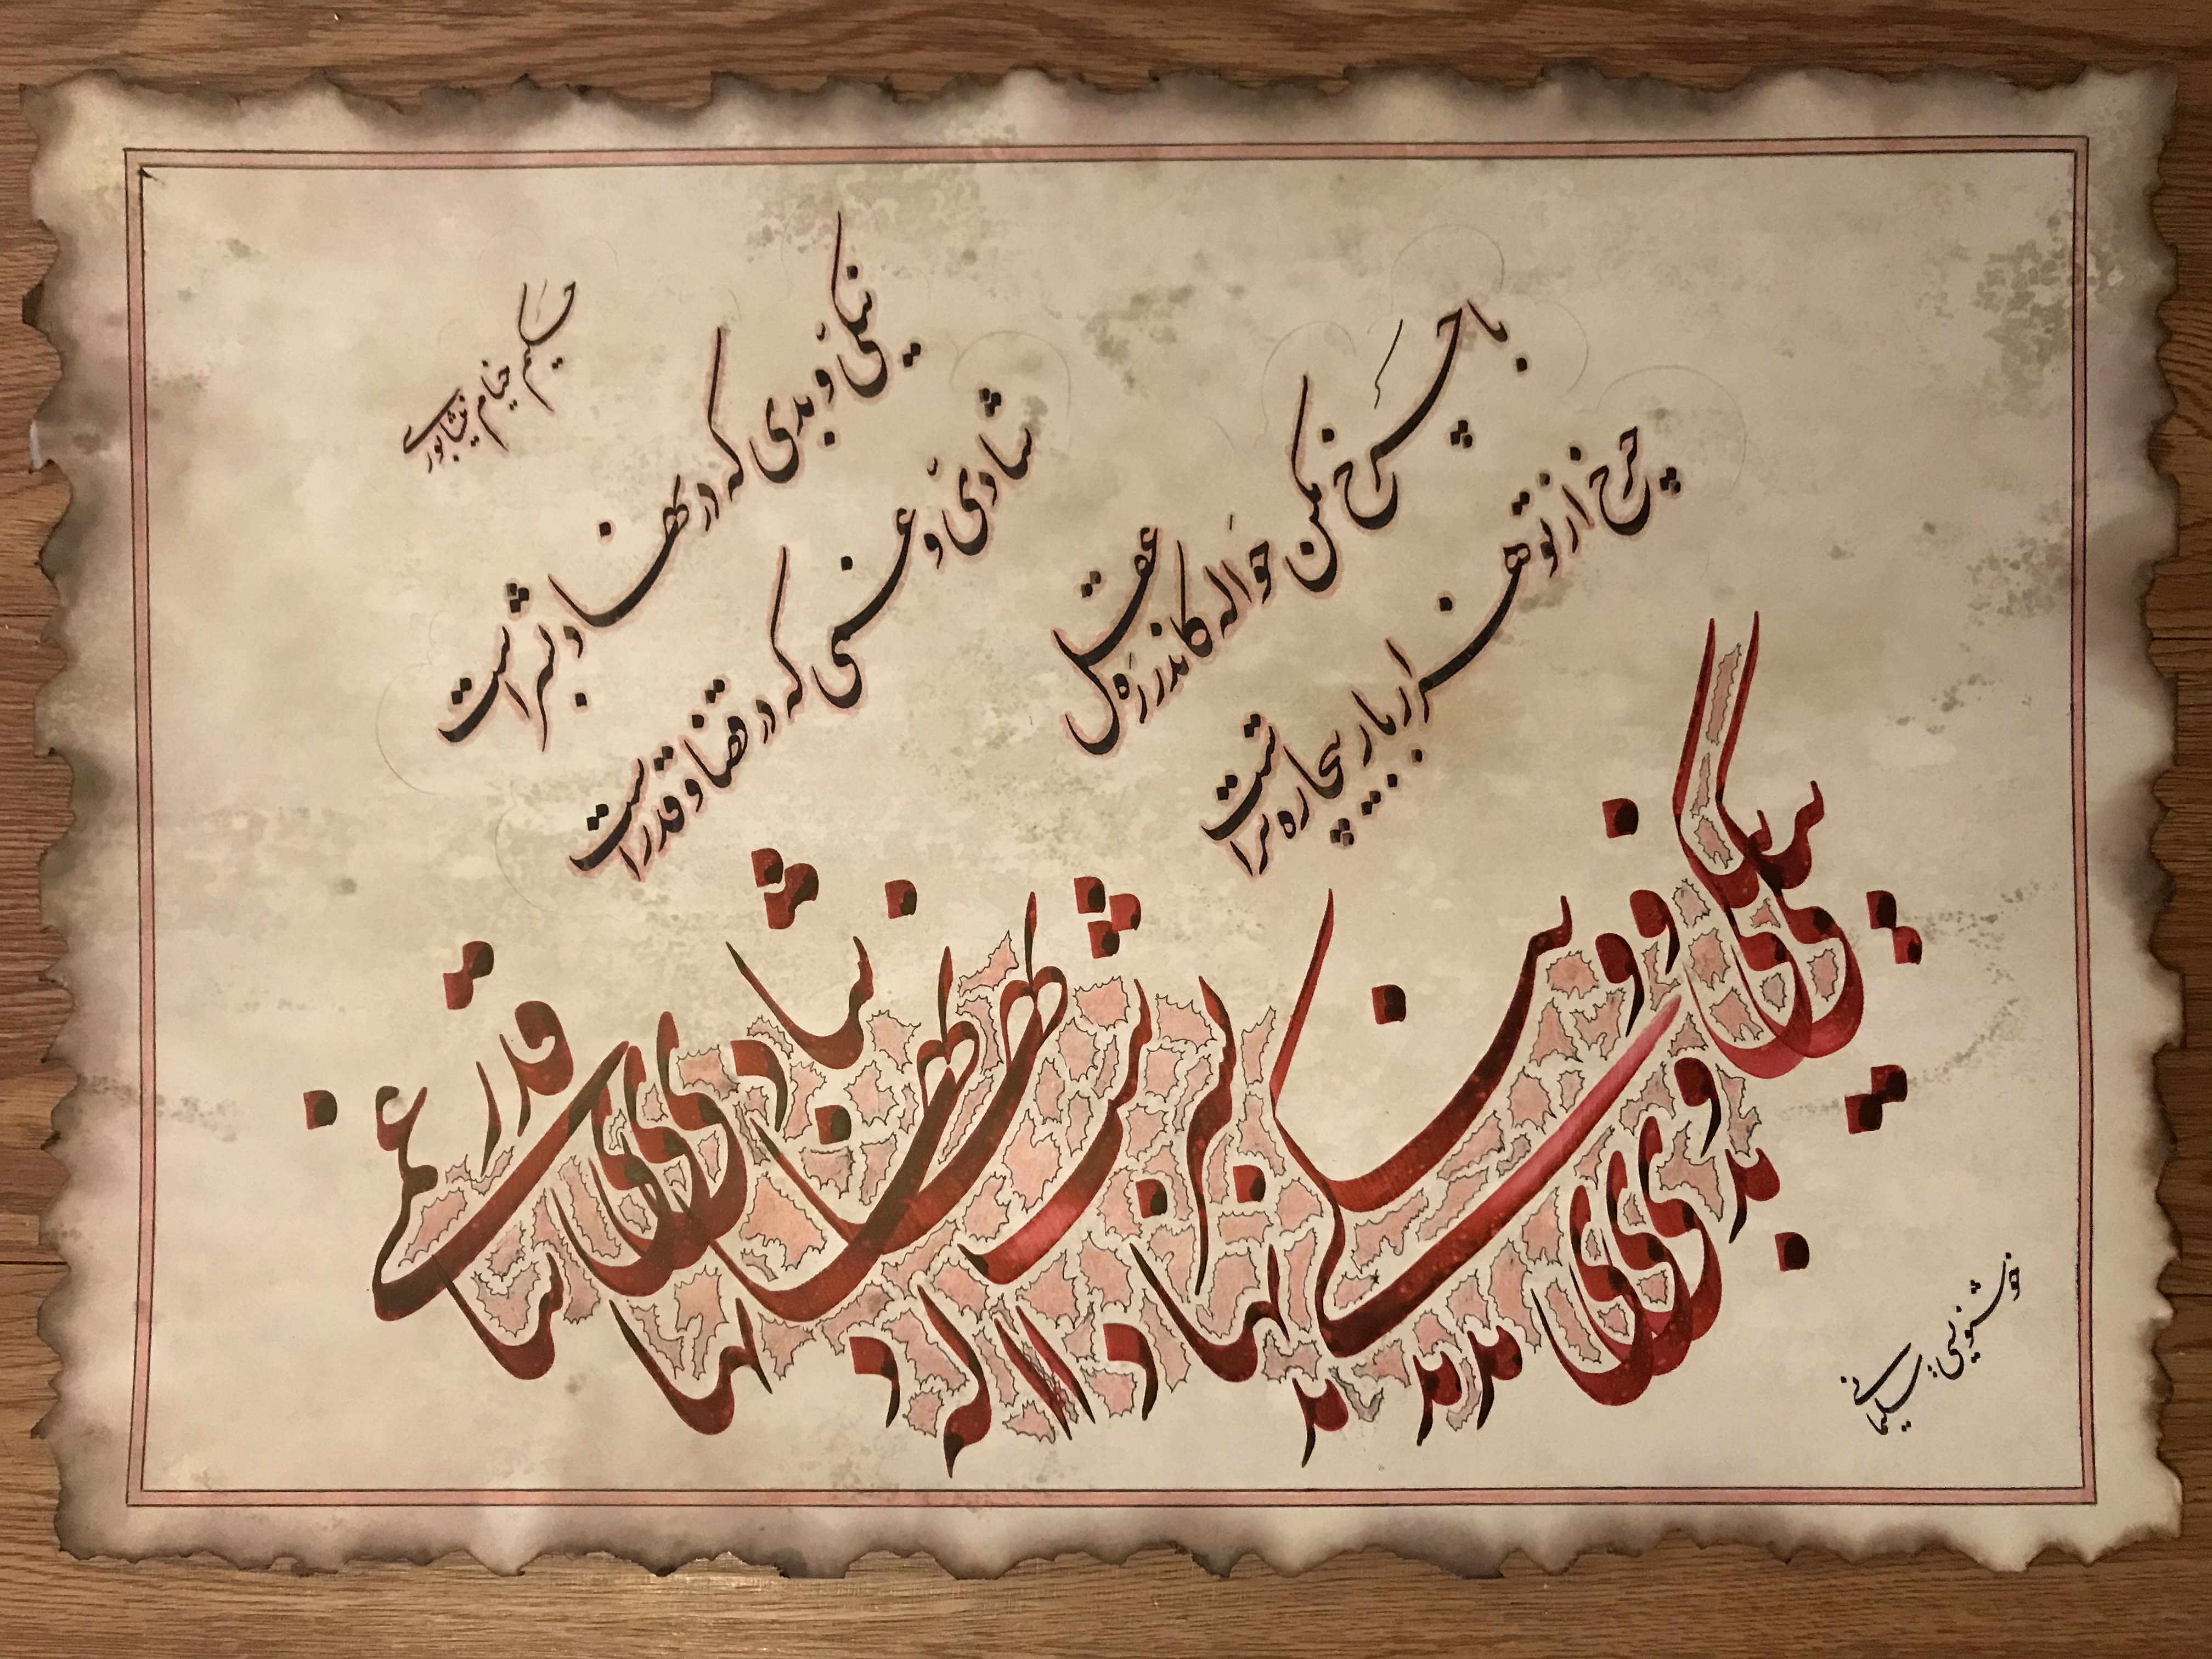 حکیم خیام نیشابوری
نیکی و بدی که در نهاد بشر است
شادی و غمی که در قضا و قدر است
با چرخ مکن حواله کاندر ره عقل
چرخ از تو هزار بار بیچاره تر است
نیکی و بدی نهاد بشر شادی قدر غمی
خوشنویسی: سلیمانی